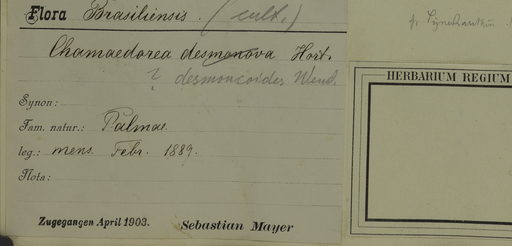 Flora Brasiliensis. (cult.)
Chamaedorea desmonova Hort.
? desmoncoides Wend.
Synon:
Fam. natur.: Palmae
leg.: mens. Febr. 1889.
Nota:
Zugegangen April 1903. Sebastian Mayer
HERBARIUM REGIUM